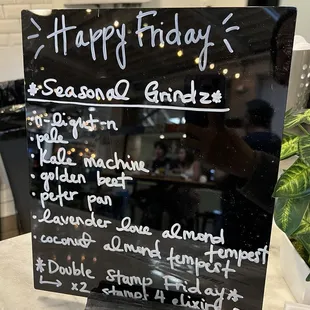 Happy Friday
*Seasonal Grindz*
· n-light-n
· pele
· kale machine
· golden beet
· peter pan
· lavender love almond
tempest
· coconut almond tempest
*Double Stamp Friday*
↳ x2 stamps 4 elixirs